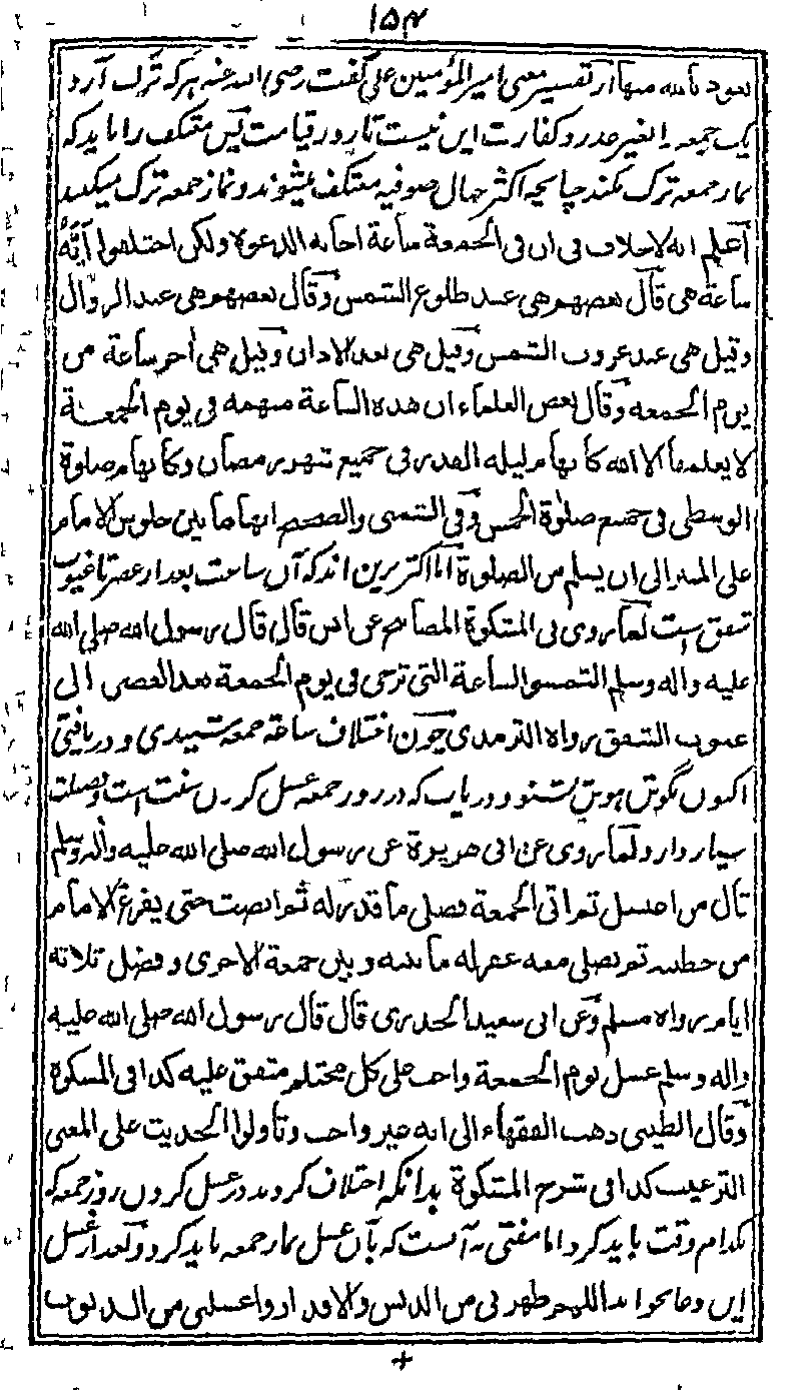 ۱۵۴
نعوذ بالله منها از تفسیر معنی امیر المؤمنین علی گفت رضی الله عنه هر که ترک آرد
یک جمعه را بغیر عذر و کفارت این نیست تا روز قیامت پس معتکف را باید که
نماز جمعه ترک نکند چنانچه اکثر جهال صوفیه معتکف میشوند و نماز جمعه ترک میکنند
أعلم انه لاخلاف فی ان فی الجمعة ساعة اجابة الدعوة ولکن اختلفوا أیّة
ساعة هی قال بعضهم هی عند طلوع الشمس وقال بعضهم هی عند الزوال
وقیل هی عند غروب الشمس وقیل هی بعد الاذان وقیل هی أخر ساعة من
یوم الجمعه وقال بعض العلماء ان هذه الساعة مبهمة فی یوم الجمعة
لا یعلمها الا الله کابهام لیلة القدر فی جمیع شهر رمضان وکابهام صلوة
الوسطی فی جمیع صلوة الخمس وفی الشمنی والصحیح انها ما بین جلوس الامام
علی المنبر الی ان یسلم من الصلوة اما اکثر برین اند که آن ساعت بعد از عصر تا غیوب
شفق است لما روی فی المشکوة المصابیح عن انس قال قال رسول الله صلی الله
علیه واله وسلم التمسوا الساعة التی ترجی فی یوم الجمعة بعد العصر الی
غیوب الشفق رواه الترمذی چون اختلاف ساعة جمعه شنیدی و دریافتی
اکنون بگوش هوش بشنو و دریاب که در روز جمعه غسل کردن سنت است وفضیلت
بسیار دارد لما روی عن ابی هریرة عن رسول الله صلی الله علیه وأله وسلم
قال من اغتسل ثم اتی الجمعة فصلی ما قدر له ثم انصت حتی یفرغ الامام
من خطبته ثم یصلی معه غفر له ما بینه و بین جمعة الاخری وفضل ثلاثة
ایام رواه مسلم وعن ابی سعید الخدری قال قال رسول الله صلی الله علیه
واله وسلم غسل یوم الجمعة واجب علی کل محتلم متفق علیه کذا فی المشکوة
وقال الطیبی ذهب الفقهاء الی انه غیر واجب وتأولوا الحدیث علی المعنی
الترغیب کذا فی شرح المشکوة بدانکه اختلاف کردند در غسل کردن روز جمعه که
بکدام وقت باید کرد اما مفتی به آنست که بآن غسل نماز جمعه باید کرد وبعد از غسل
این دعا بخواند اللهم طهرنی من الدنس والاقذار واغسلنی من الذنوب